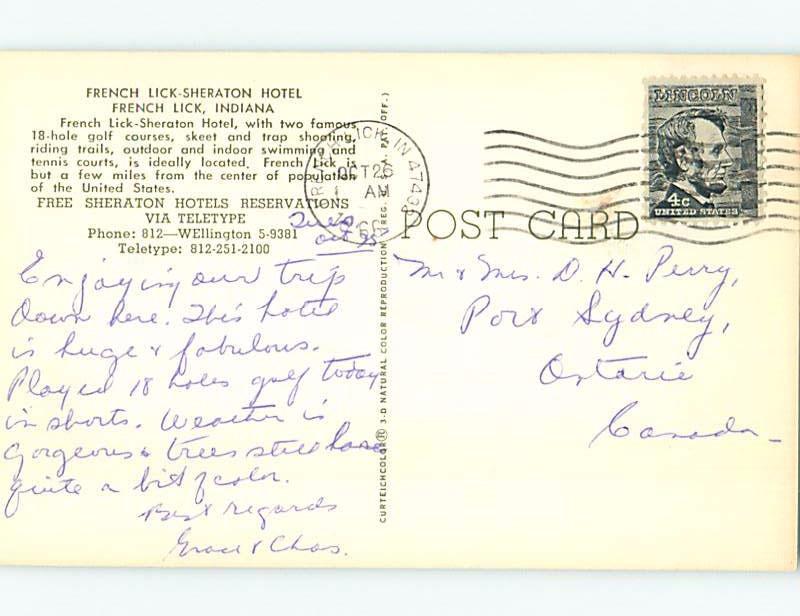 FRENCH LICK-SHERATON HOTEL
FRENCH LICK, INDIANA
French Lick-Sheraton Hotel, with two famous
18-hole golf courses, skeet and trap shooting,
riding trails, outdoor and indoor swimming and
tennis courts, is ideally located. French Lick is
but a few miles from the center of population
of the United States.
FREE SHERATON HOTELS RESERVATIONS
VIA TELETYPE
Phone: 812—WEllington 5-9381
Teletype: 812-251-2100
Tues
Oct 25
Enjoying our trip
down here. This hotel
is huge & fabulous.
Played 18 holes golf today
in shorts. Weather is
gorgeous & trees still have
quite a bit of color.
Best regards
Grace & Chas.
CURTEICHCOLOR® 3-D NATURAL COLOR REPRODUCTION (REG. U.S.A. PAT. OFF.)
FRENCH LICK IN 47432
OCT 26
AM
POST CARD
LINCOLN
4c
UNITED STATES
Mr & Mrs. D. H. Perry,
Port Sydney,
Ontario
Canada